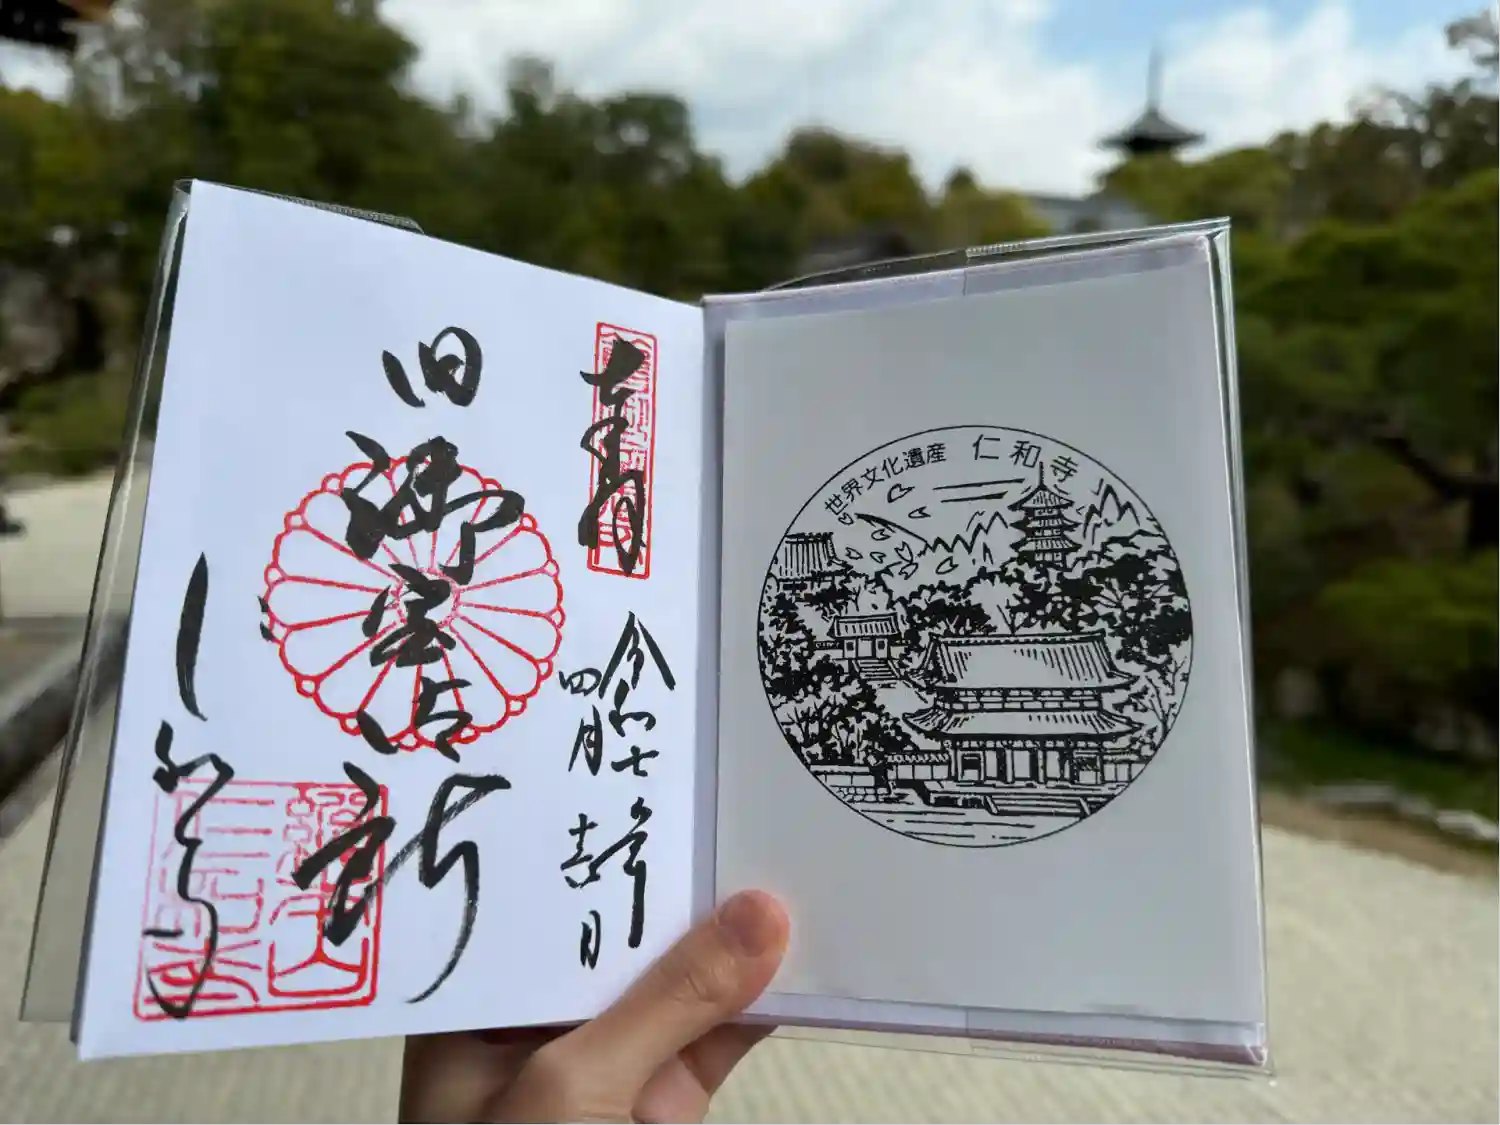 奉拝
令和七年
四月吉日
旧御室御所
仁和寺
世界文化遺産 仁和寺